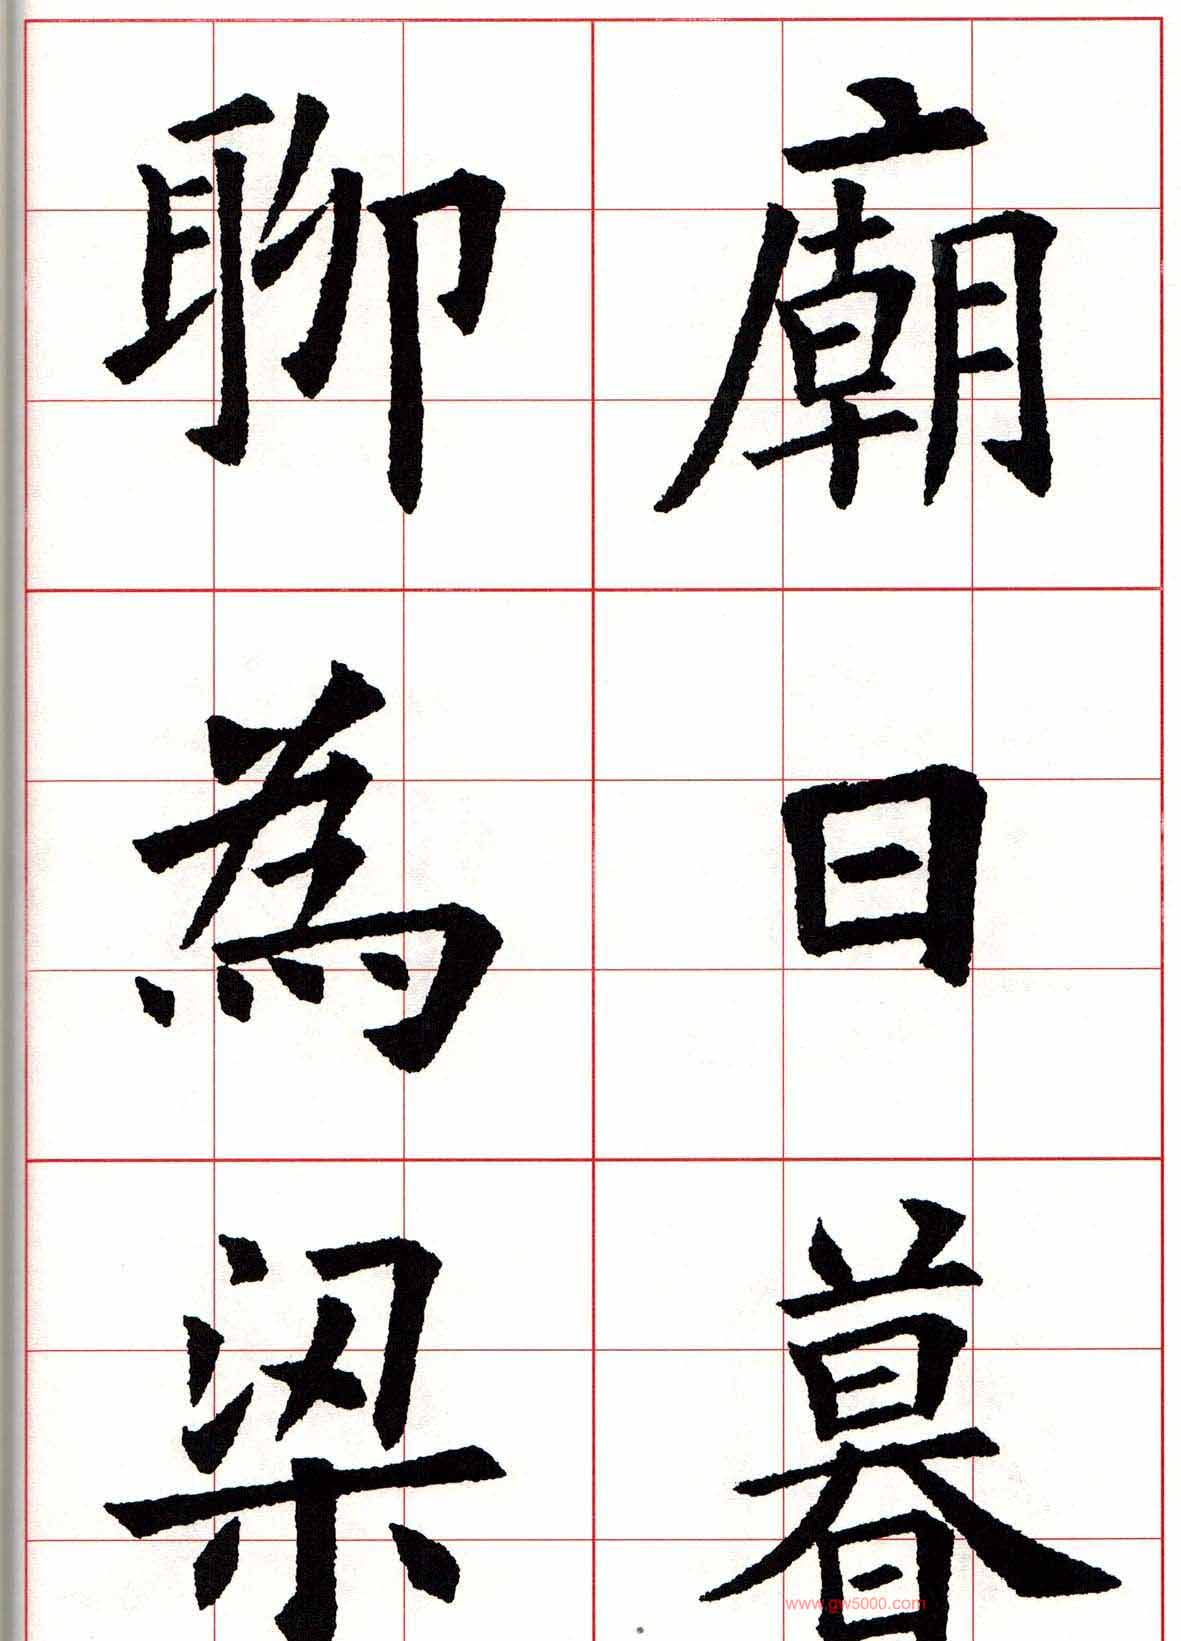 廟日暮
聊為梁
www.gw5000.com